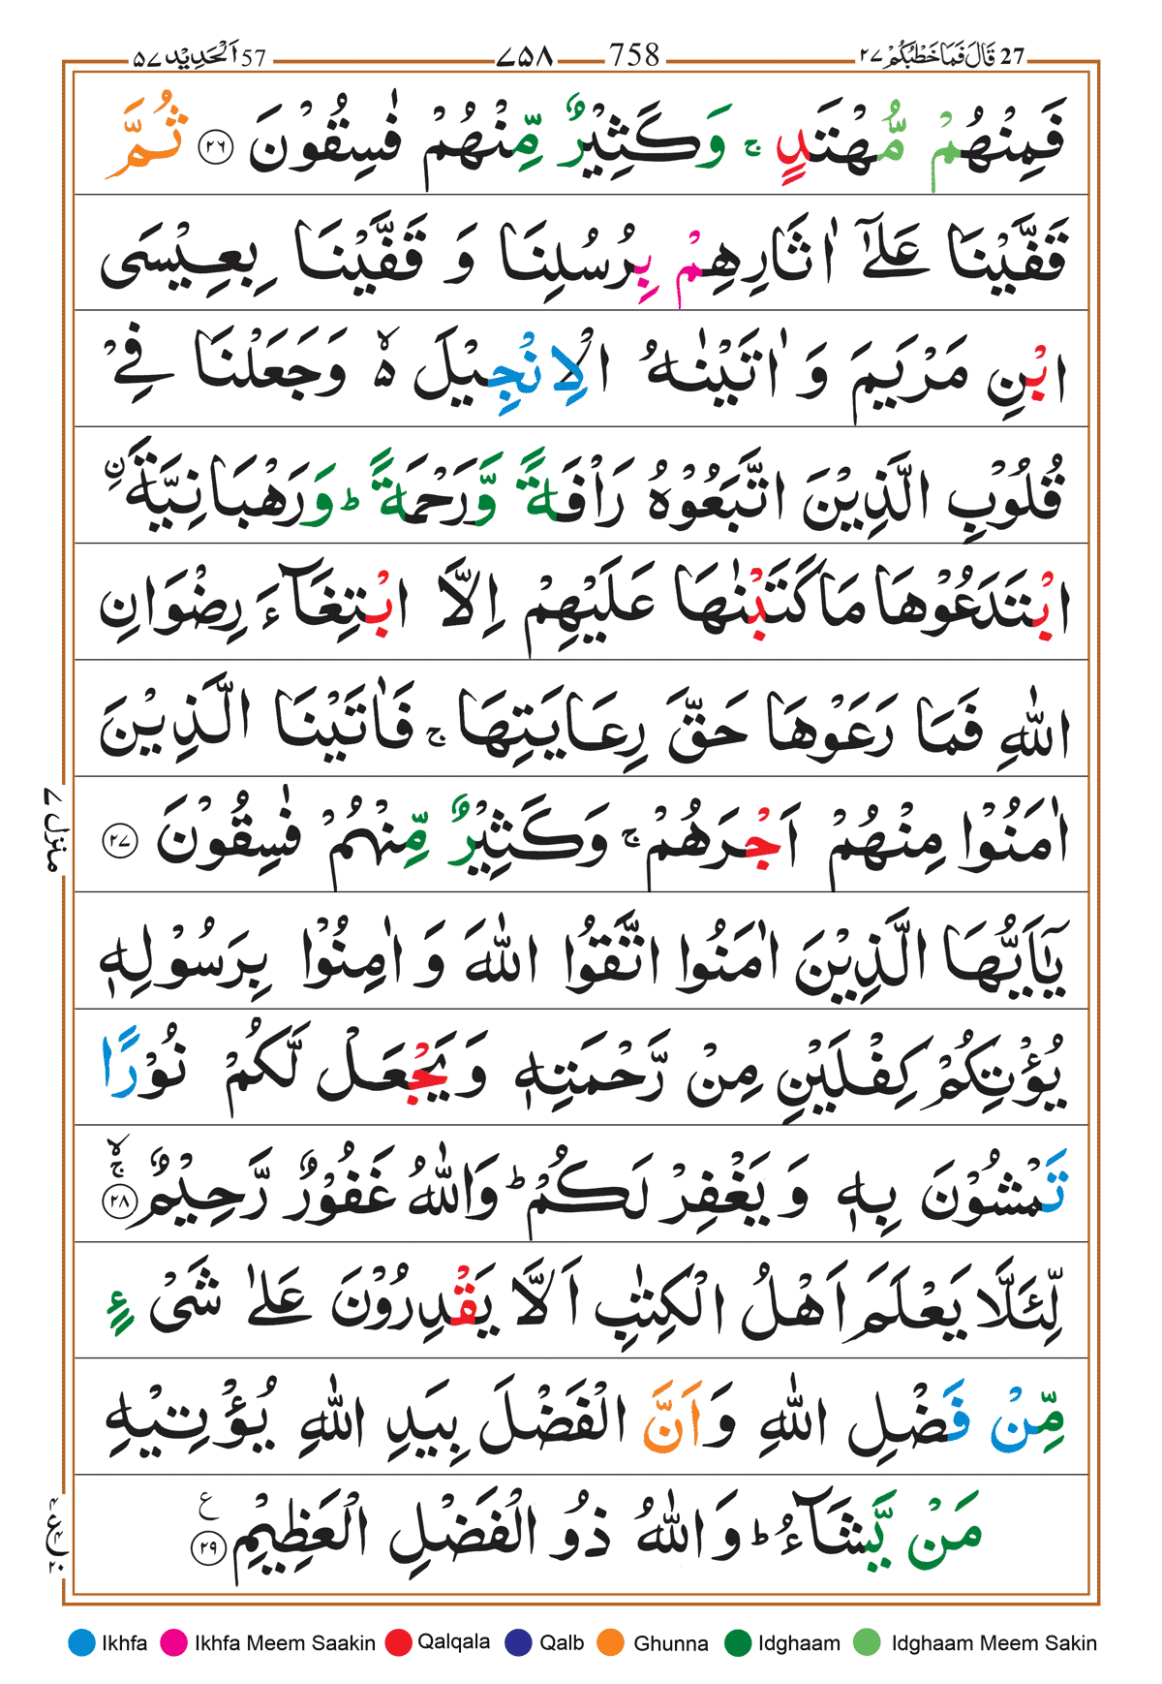 27 قَالَ فَمَا خَطْبُكُمْ ٢٧ 758 ٧٥٨ 57 اَلْحَدِيْد ٥٧
فَمِنْهُمْ مُّهْتَدٍ ۚ وَكَثِيْرٌ مِّنْهُمْ فٰسِقُوْنَ ﴿٢٦﴾ ثُمَّ
قَفَّيْنَا عَلٰٓى اٰثَارِهِمْ بِرُسُلِنَا وَ قَفَّيْنَا بِعِيْسَى
ابْنِ مَرْيَمَ وَ اٰتَيْنٰهُ الْاِنْجِيْلَ ۙ۬ وَجَعَلْنَا فِيْ
قُلُوْبِ الَّذِيْنَ اتَّبَعُوْهُ رَاْفَةً وَّرَحْمَةً ؕ وَرَهْبَانِيَّةَ ۨ
ابْتَدَعُوْهَا مَا كَتَبْنٰهَا عَلَيْهِمْ اِلَّا ابْتِغَآءَ رِضْوَانِ
اللّٰهِ فَمَا رَعَوْهَا حَقَّ رِعَايَتِهَا ۚ فَاٰتَيْنَا الَّذِيْنَ
اٰمَنُوْا مِنْهُمْ اَجْرَهُمْ ۚ وَكَثِيْرٌ مِّنْهُمْ فٰسِقُوْنَ ﴿٢٧﴾
يٰٓاَيُّهَا الَّذِيْنَ اٰمَنُوا اتَّقُوا اللّٰهَ وَ اٰمِنُوْا بِرَسُوْلِهٖ
يُؤْتِكُمْ كِفْلَيْنِ مِنْ رَّحْمَتِهٖ وَيَجْعَلْ لَّكُمْ نُوْرًا
تَمْشُوْنَ بِهٖ وَ يَغْفِرْ لَكُمْ ؕ وَاللّٰهُ غَفُوْرٌ رَّحِيْمٌ ﴿٢٨﴾ ۚۙ
لِّئَلَّا يَعْلَمَ اَهْلُ الْكِتٰبِ اَلَّا يَقْدِرُوْنَ عَلٰى شَيْءٍ
مِّنْ فَضْلِ اللّٰهِ وَاَنَّ الْفَضْلَ بِيَدِ اللّٰهِ يُؤْتِيْهِ
مَنْ يَّشَآءُ ؕ وَاللّٰهُ ذُو الْفَضْلِ الْعَظِيْمِ ﴿٢٩﴾ ع
منزل ٧
Ikhfa Ikhfa Meem Saakin Qalqala Qalb Ghunna Idghaam Idghaam Meem Sakin